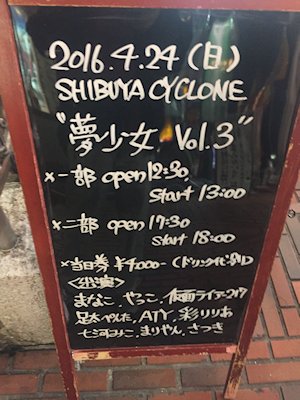 2016.4.24(日)
SHIBUYA CYCLONE
"夢少女 Vol.3"
×一部 open 12:30
start 13:00
×二部 open 17:30
start 18:00
×当日券 ¥4,000-(ドリンク代別)
<出演>
まなこ、やっこ、仮面ライアー217
足太ぺんた、ATY、彩りりあ
七河みこ、まりやん、さつき